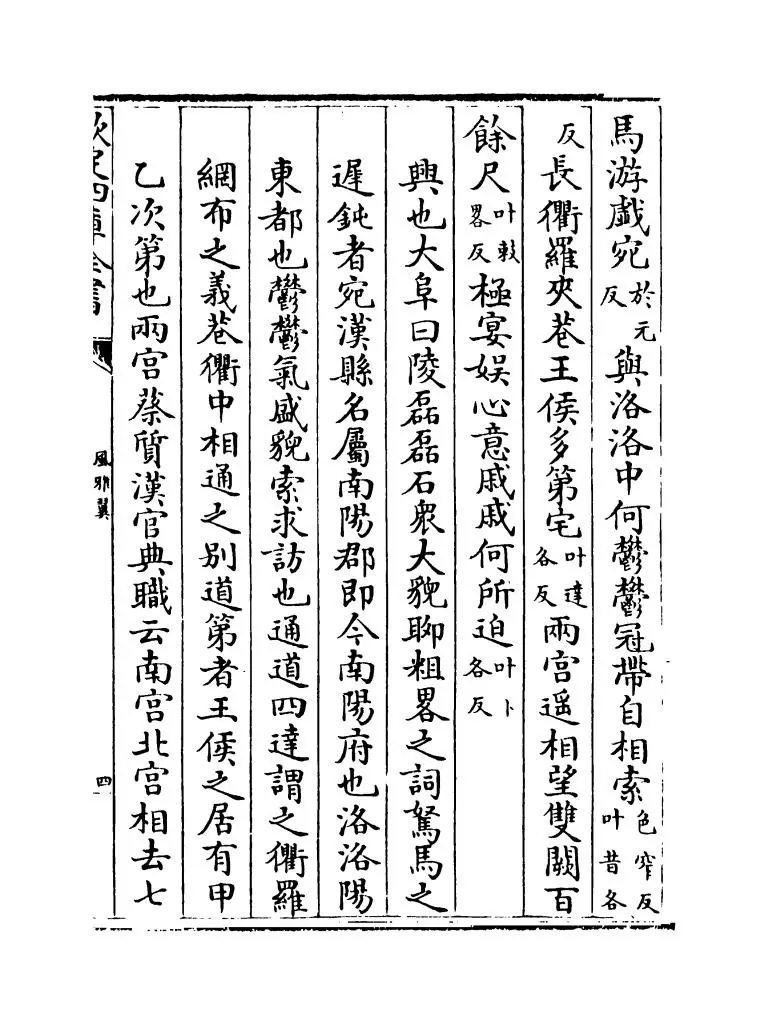 馬游戲宛於元反與洛洛中何鬱鬱冠帶自相索色窄反叶昔各
反長衢羅夾巷王侯多第宅叶達各反兩宫遥相望雙闕百
餘尺叶敕畧反極宴娱心意戚戚何所迫叶卜各反
興也大阜曰陵磊磊石衆大貌聊粗畧之詞駑馬之
遲鈍者宛漢縣名屬南陽郡即今南陽府也洛洛陽
東都也鬱鬱氣盛貌索求訪也通道四達謂之衢羅
網布之義巷衢中相通之别道第者王侯之居有甲
乙次第也兩宫蔡質漢官典職云南宫北宫相去七
欽定四庫全書
風雅翼
四